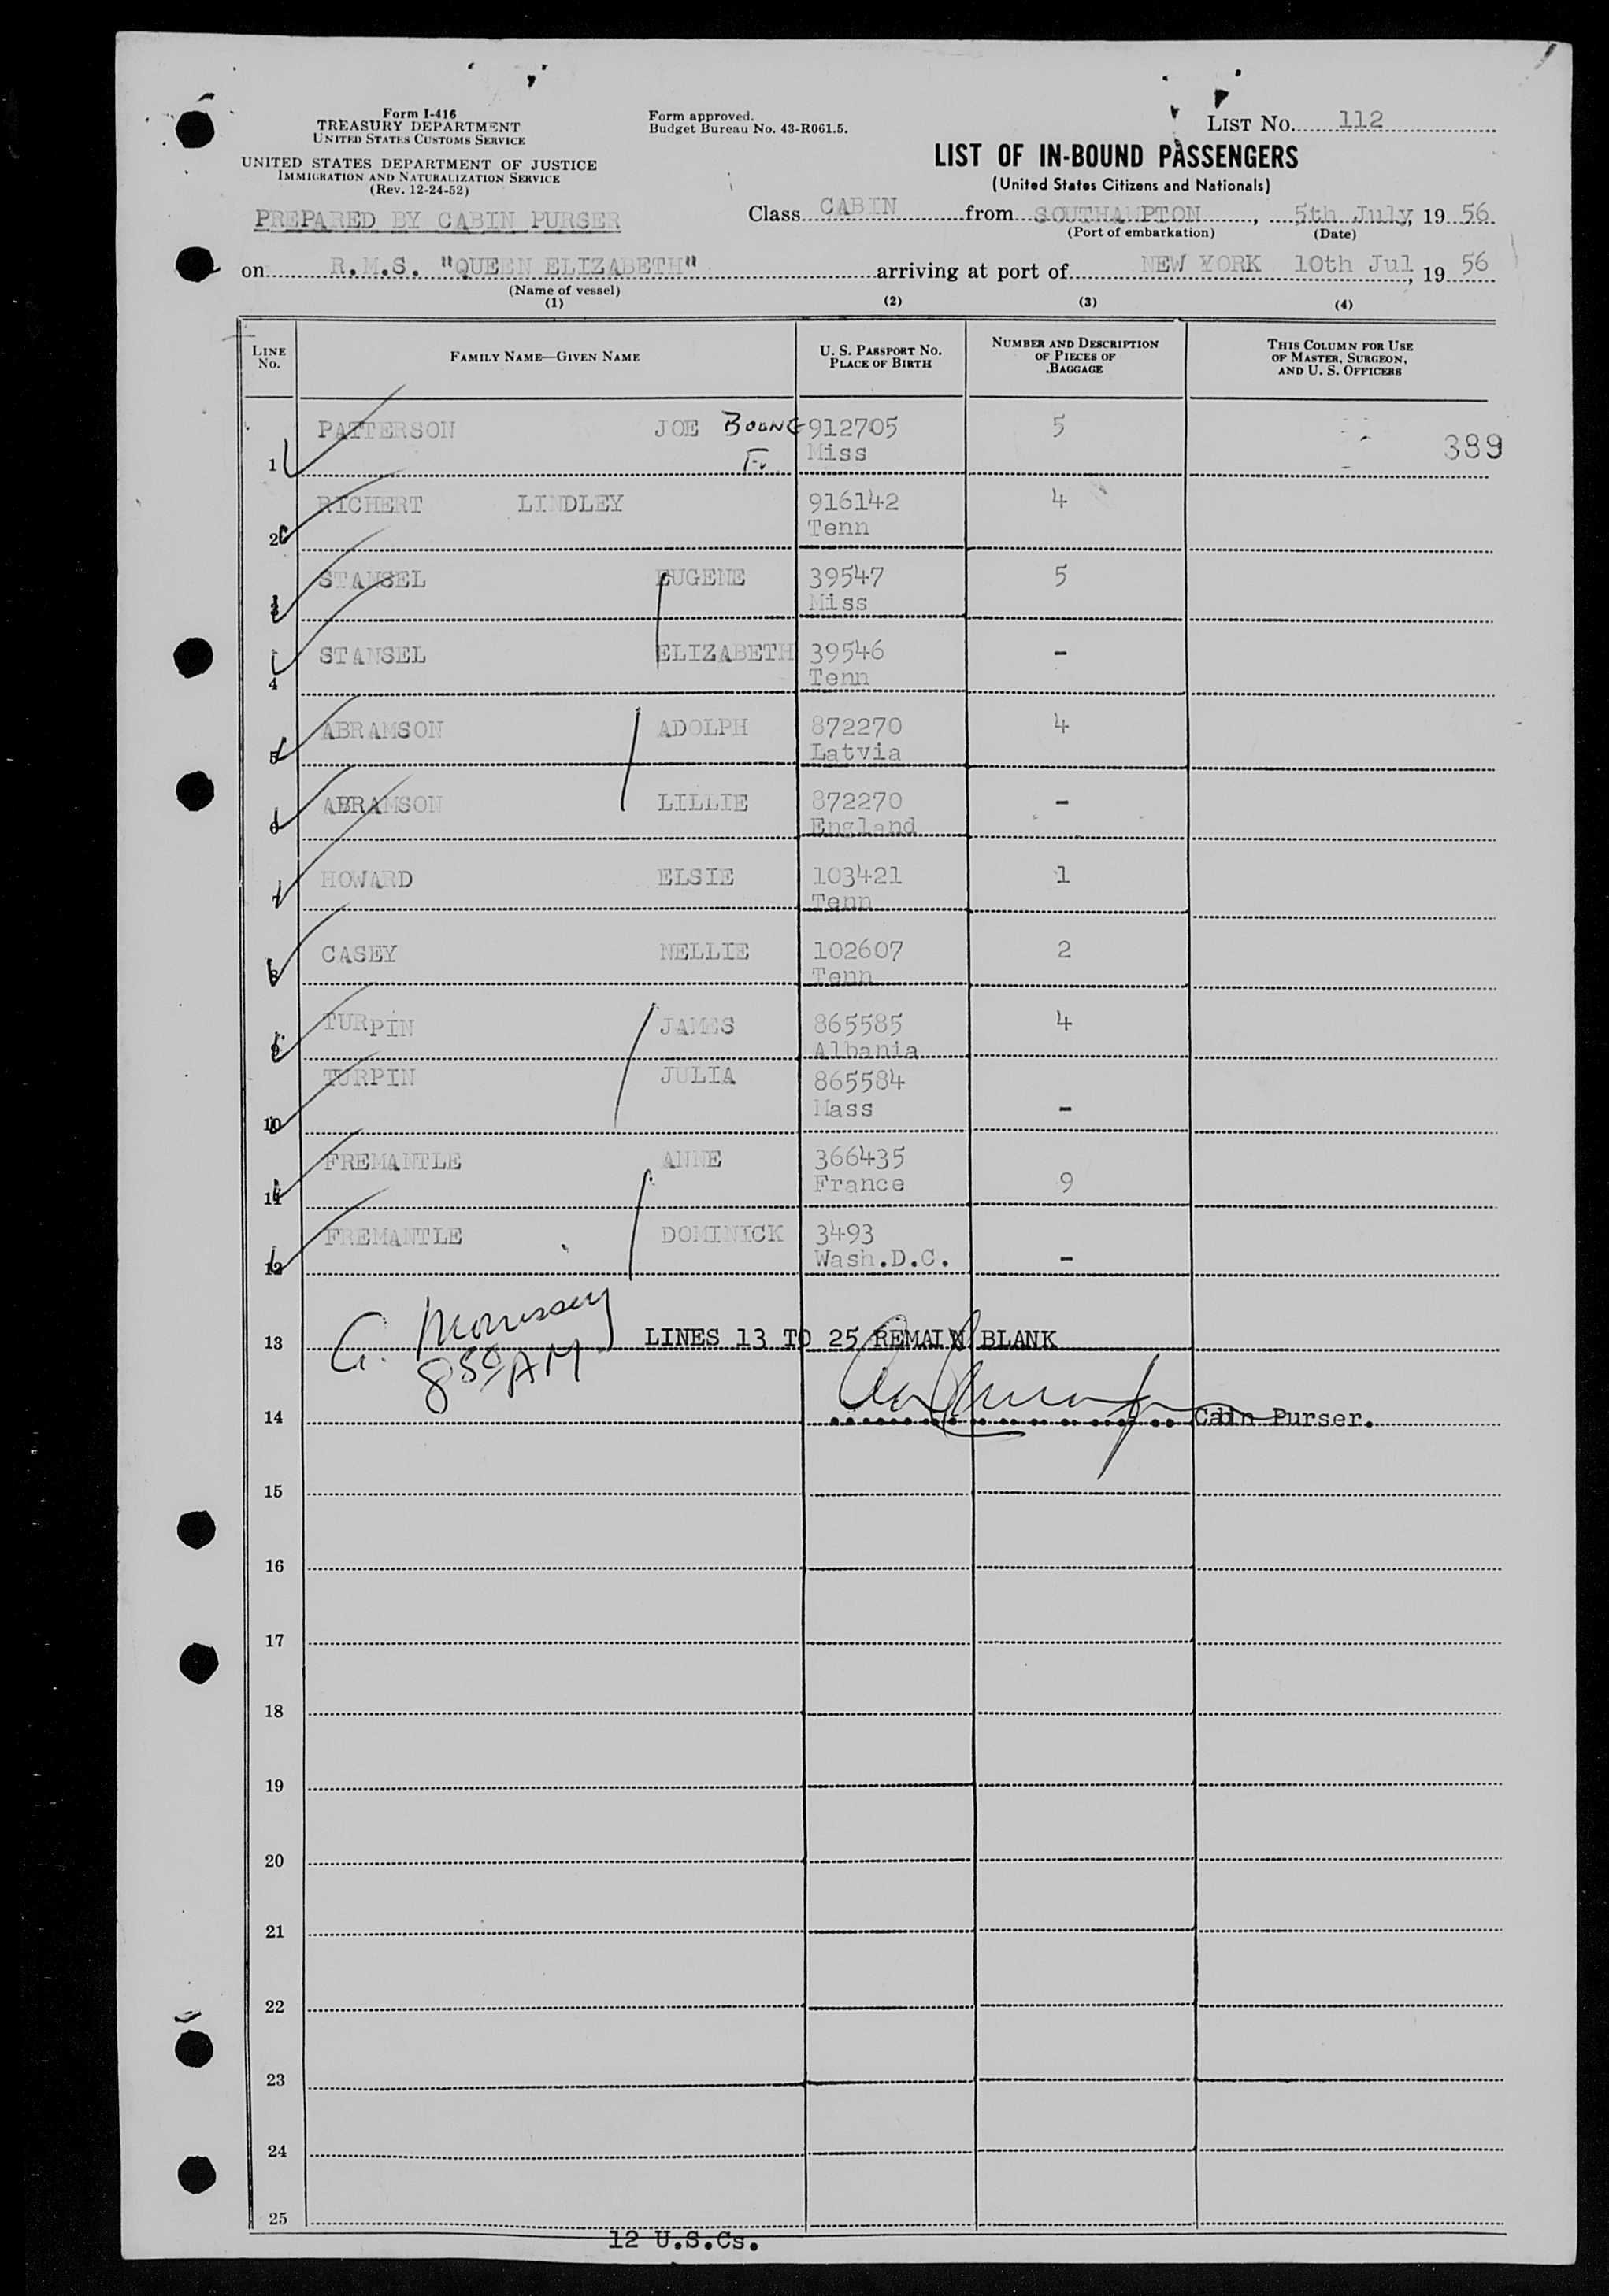 Form I-416
TREASURY DEPARTMENT
UNITED STATES CUSTOMS SERVICE
UNITED STATES DEPARTMENT OF JUSTICE
IMMIGRATION AND NATURALIZATION SERVICE
(Rev. 12-24-52)
Form approved.
Budget Bureau No. 43-R061.5.
LIST NO. 112
LIST OF IN-BOUND PASSENGERS
(United States Citizens and Nationals)
PREPARED BY CABIN PURSER
Class CABIN from SOUTHAMPTON, 5th July, 19 56
(Port of embarkation) (Date)
on R.M.S. "QUEEN ELIZABETH" arriving at port of NEW YORK 10th Jul, 19 56
(Name of vessel)
(1) (2) (3) (4)
LINE NO. FAMILY NAME—GIVEN NAME U. S. PASSPORT NO. PLACE OF BIRTH NUMBER AND DESCRIPTION OF PIECES OF BAGGAGE THIS COLUMN FOR USE OF MASTER, SURGEON, AND U. S. OFFICERS
PATTERSON JOE BOONE 912705 5
1 Miss 389
RICHERT LINDLEY 916142 4
2 Tenn
STANSEL EUGENE 39547 5
3 Miss
STANSEL ELIZABETH 39546 -
4 Tenn
ABRAMSON ADOLPH 872270 4
5 Latvia
ABRAMSON LILLIE 872270 -
6 England
HOWARD ELSIE 103421 1
7 Tenn
CASEY NELLIE 102607 2
8 Tenn
TURPIN JAMES 865585 4
9 Albania
TURPIN JULIA 865584
10 Mass -
FREMANTLE ANNE 366435
11 France 9
FREMANTLE DOMINICK 3493
12 Wash.D.C. -
13 G. Morrissey LINES 13 TO 25 REMAIN BLANK
8 50 AM
14 Cain Purser.
15
16
17
18
19
20
21
22
23
24
25
12 U.S.Cs.